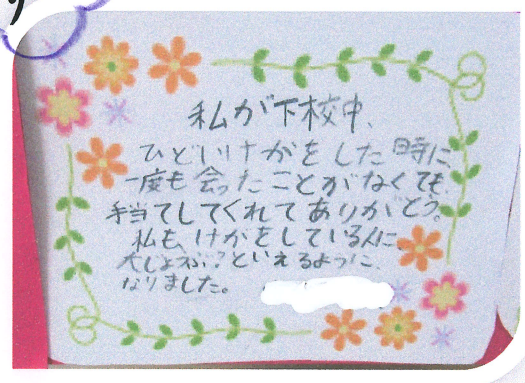 私が下校中、
ひどいけがをした時に、
一度も会ったことがなくても、
手当てしてくれてありがとう。
私も、けがをしている人に、
大じょうぶ？といえるように、
なりました。